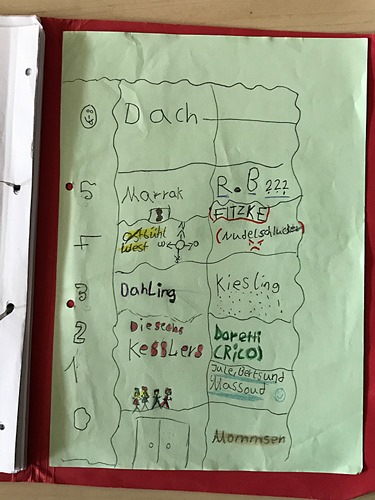 Dach
5
Marrak
R. B ???
FITZKE
4
Ostbühl
West
N
W
O
S
(Nudelschlucker)
3
Dahling
Kiesling
2
Die sechs
KESSLERS
Doretti
(RiCO)
1
Jule, Berts und
Massoud
0
Mommsen